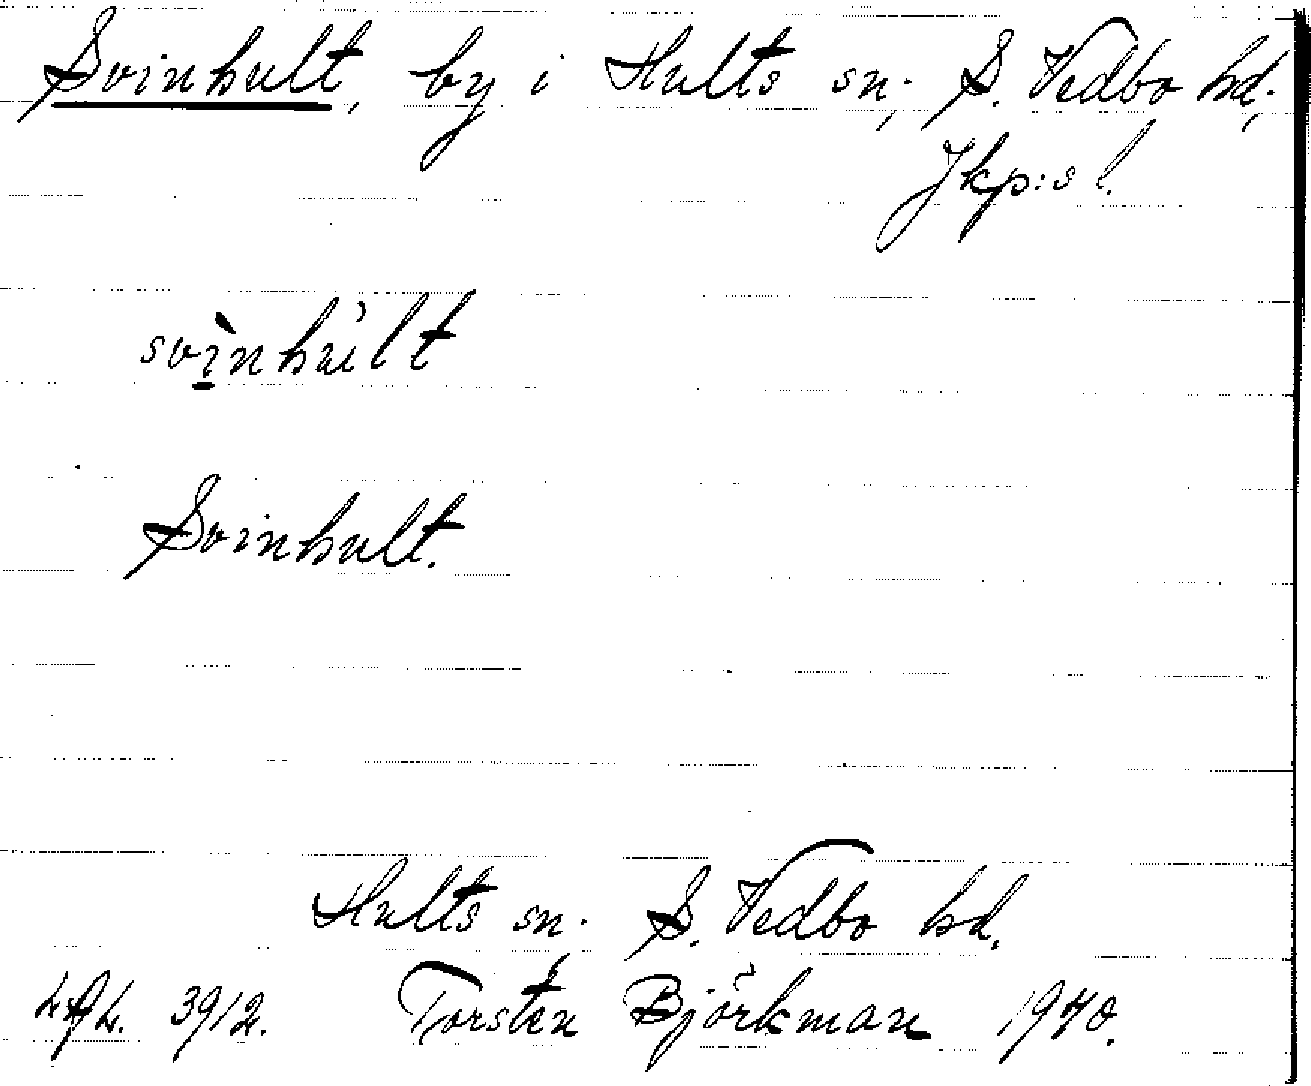 Svinhult, by i Hults sn., S. Vedbo hd.,
Jkp:s l.
svìnhúlt
Svinhult.
Hults sn. S. Vedbo hd.
3912. Torsten Björkman 1940.